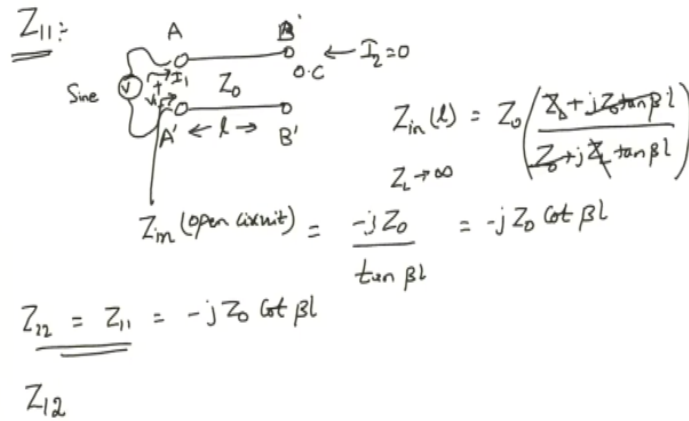 Z₁₁:-
A B'
← I₂=0
O.C
Sine V + → I₁ Z₀
V₁
A' ← l → B'
Zᵢₙ(l) = Z₀ ( (Z_L + jZ₀ tan βl) / (Z₀ + jZ_L tan βl) )
Z_L → ∞
Zᵢₙ (open circuit) = -jZ₀ / tan βl = -jZ₀ Cot βl
Z₂₂ = Z₁₁ = -jZ₀ Cot βl
Z₁₂